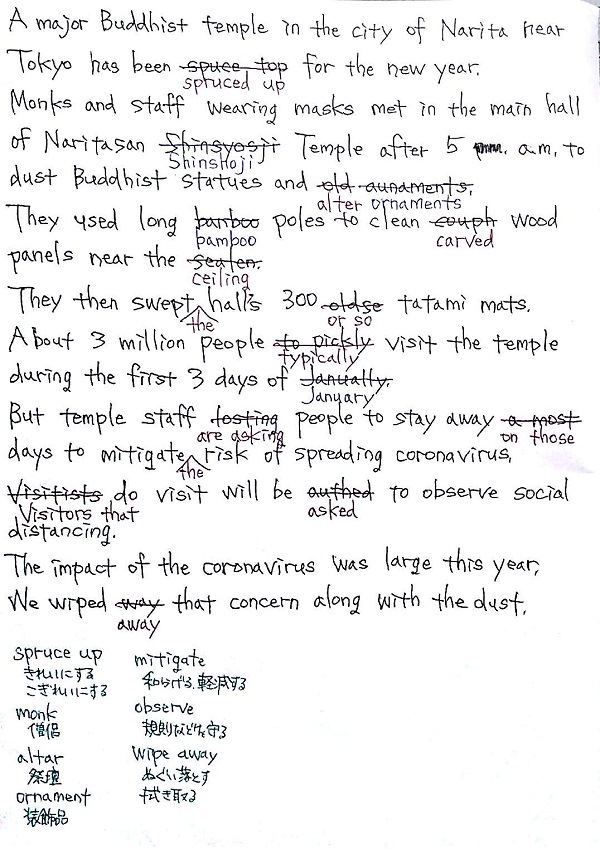 A major Buddhist temple in the city of Narita near
Tokyo has been spuce top for the new year.
spruced up
Monks and staff wearing masks met in the main hall
of Naritasan Shinsyoji Temple after 5 a.m. to
Shinshoji
dust Buddhist statues and old aunaments.
alter ornaments
They used long barboo poles to clean couph wood
bamboo carved
panels near the seaten.
ceiling
They then swept halls 300 oldse tatami mats.
the or so
About 3 million people to pickly visit the temple
typically
during the first 3 days of Janually.
January
But temple staff fosting people to stay away a most
are asking on those
days to mitigate risk of spreading coronavirus.
the
Visitists do visit will be authed to observe social
Visitors that asked
distancing.
The impact of the coronavirus was large this year,
We wiped way that concern along with the dust.
away
spruce up
きれいにする
こぎれいにする
monk
僧侶
altar
祭壇
ornament
装飾品
mitigate
和らげる、軽減する
observe
規則などを守る
wipe away
ぬぐい落とす
拭き取る